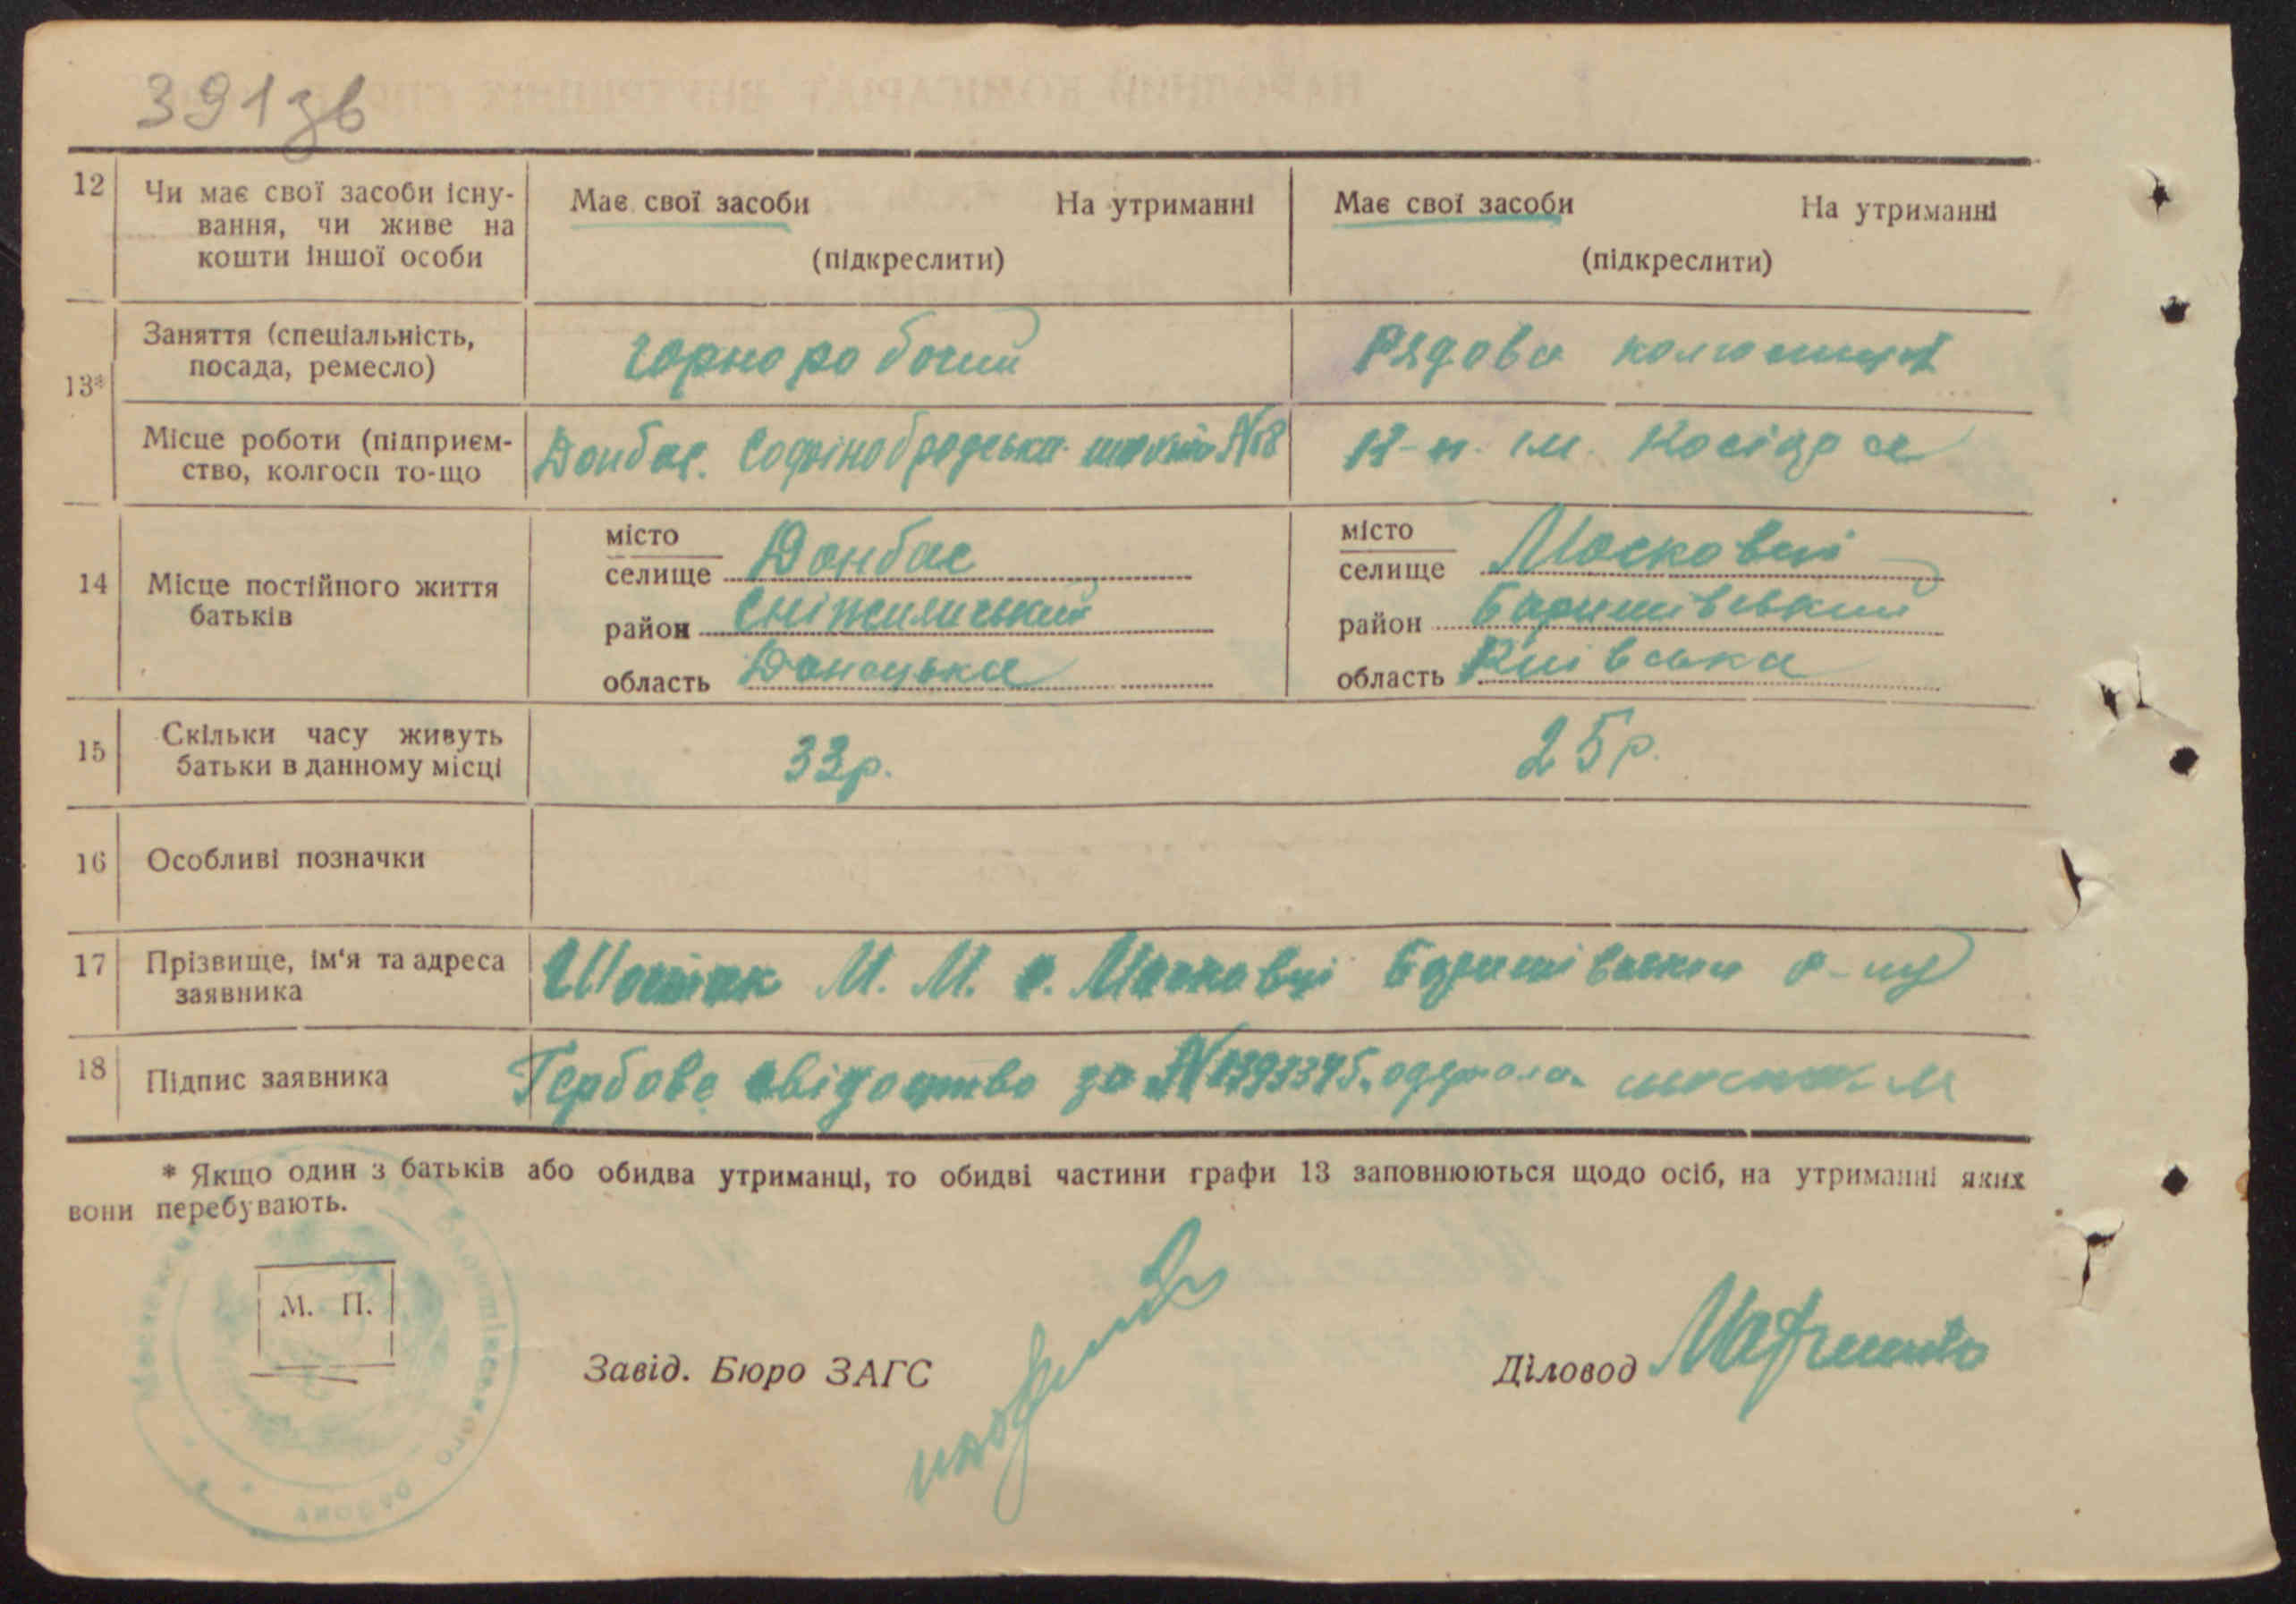 391зв
12 Чи має свої засоби існу-
вання, чи живе на
кошти іншої особи
Має свої засоби На утриманні
(підкреслити)
Має свої засоби На утриманні
(підкреслити)
13*
Заняття (спеціальність,
посада, ремесло)
Горноробочий
Рядова колгоспниця
Місце роботи (підприєм-
ство, колгосп то-що
Донбас. Софіно бродська шахта №18
к-п. ім. Косіора
14 Місце постійного життя
батьків
місто
селище Донбас
район Сніжнянський
область Донецька
місто
селище Московці
район Баришівський
область Київська
15 Скільки часу живуть
батьки в данному місці
33р.
25р.
16 Особливі позначки
17 Прізвище, ім'я та адреса
заявника
М. М. с. Московці Баришівського р-ну
18 Підпис заявника
Гербове свідоцтво за № одержала
* Якщо один з батьків або обидва утриманці, то обидві частини графи 13 заповнюються щодо осіб, на утриманні яких
вони перебувають.
М. П.
Завід. Бюро ЗАГС
Діловод